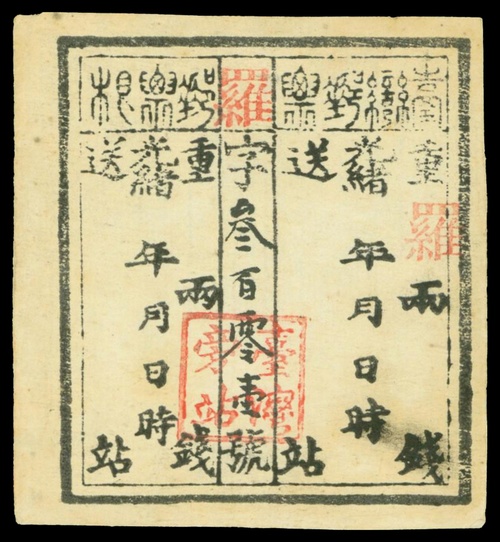 臺灣郵票
重兩錢
光緒年月日時
送站
羅
羅字叁百零壹號
郵票根
重兩錢
光緒年月日時
送站
臺灣
旁站